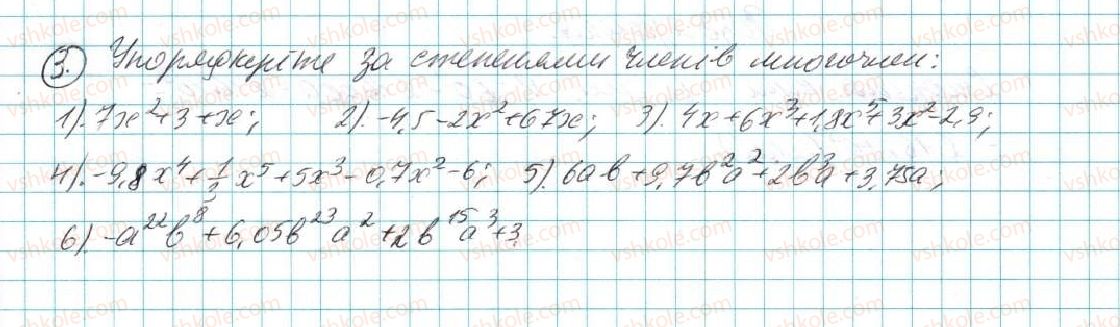 3. Упорядкуйте за степенями членів многочлен:
1). 7x²+3+x; 2). -4,5-2x²+67x; 3). 4x+6x³+1,8x⁵+3x²-2,9;
4). -9,8x⁴+1/3x⁵+5x³-0,7x²-6; 5). 6ab+9,7b²a²+2b³a+3,75a;
6). -a²²b⁸+6,05b²³a²+2b¹⁵a³+3